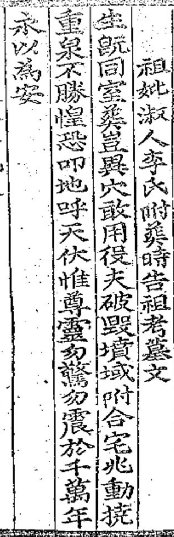 祖妣淑人李氏附葬時告祖考墓文
生旣同室葬豈異穴敢用役夫破毀墳域附合宅兆動撓
重泉不勝惶恐叩地呼天伏惟尊靈勿驚勿震於千萬年
永以爲安